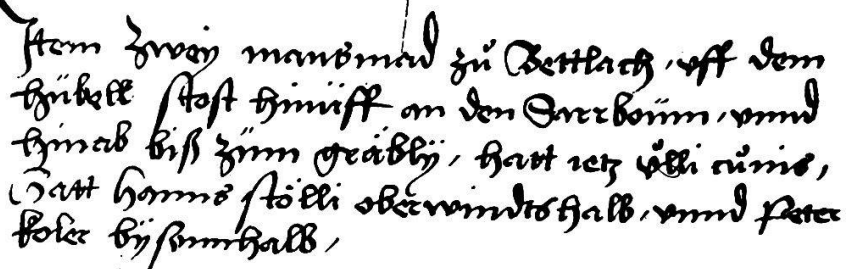 Item Zwey mansmad zů Bettlach, vff dem
hübell stost hinüff an den Sarrboum, vnnd
hinab biß zům gräbly, hatt ietz vͦlli cůnis,
Hatt Hanns stölli oberwindtshalb, vnnd Peter
koler bÿ sunnhalb,